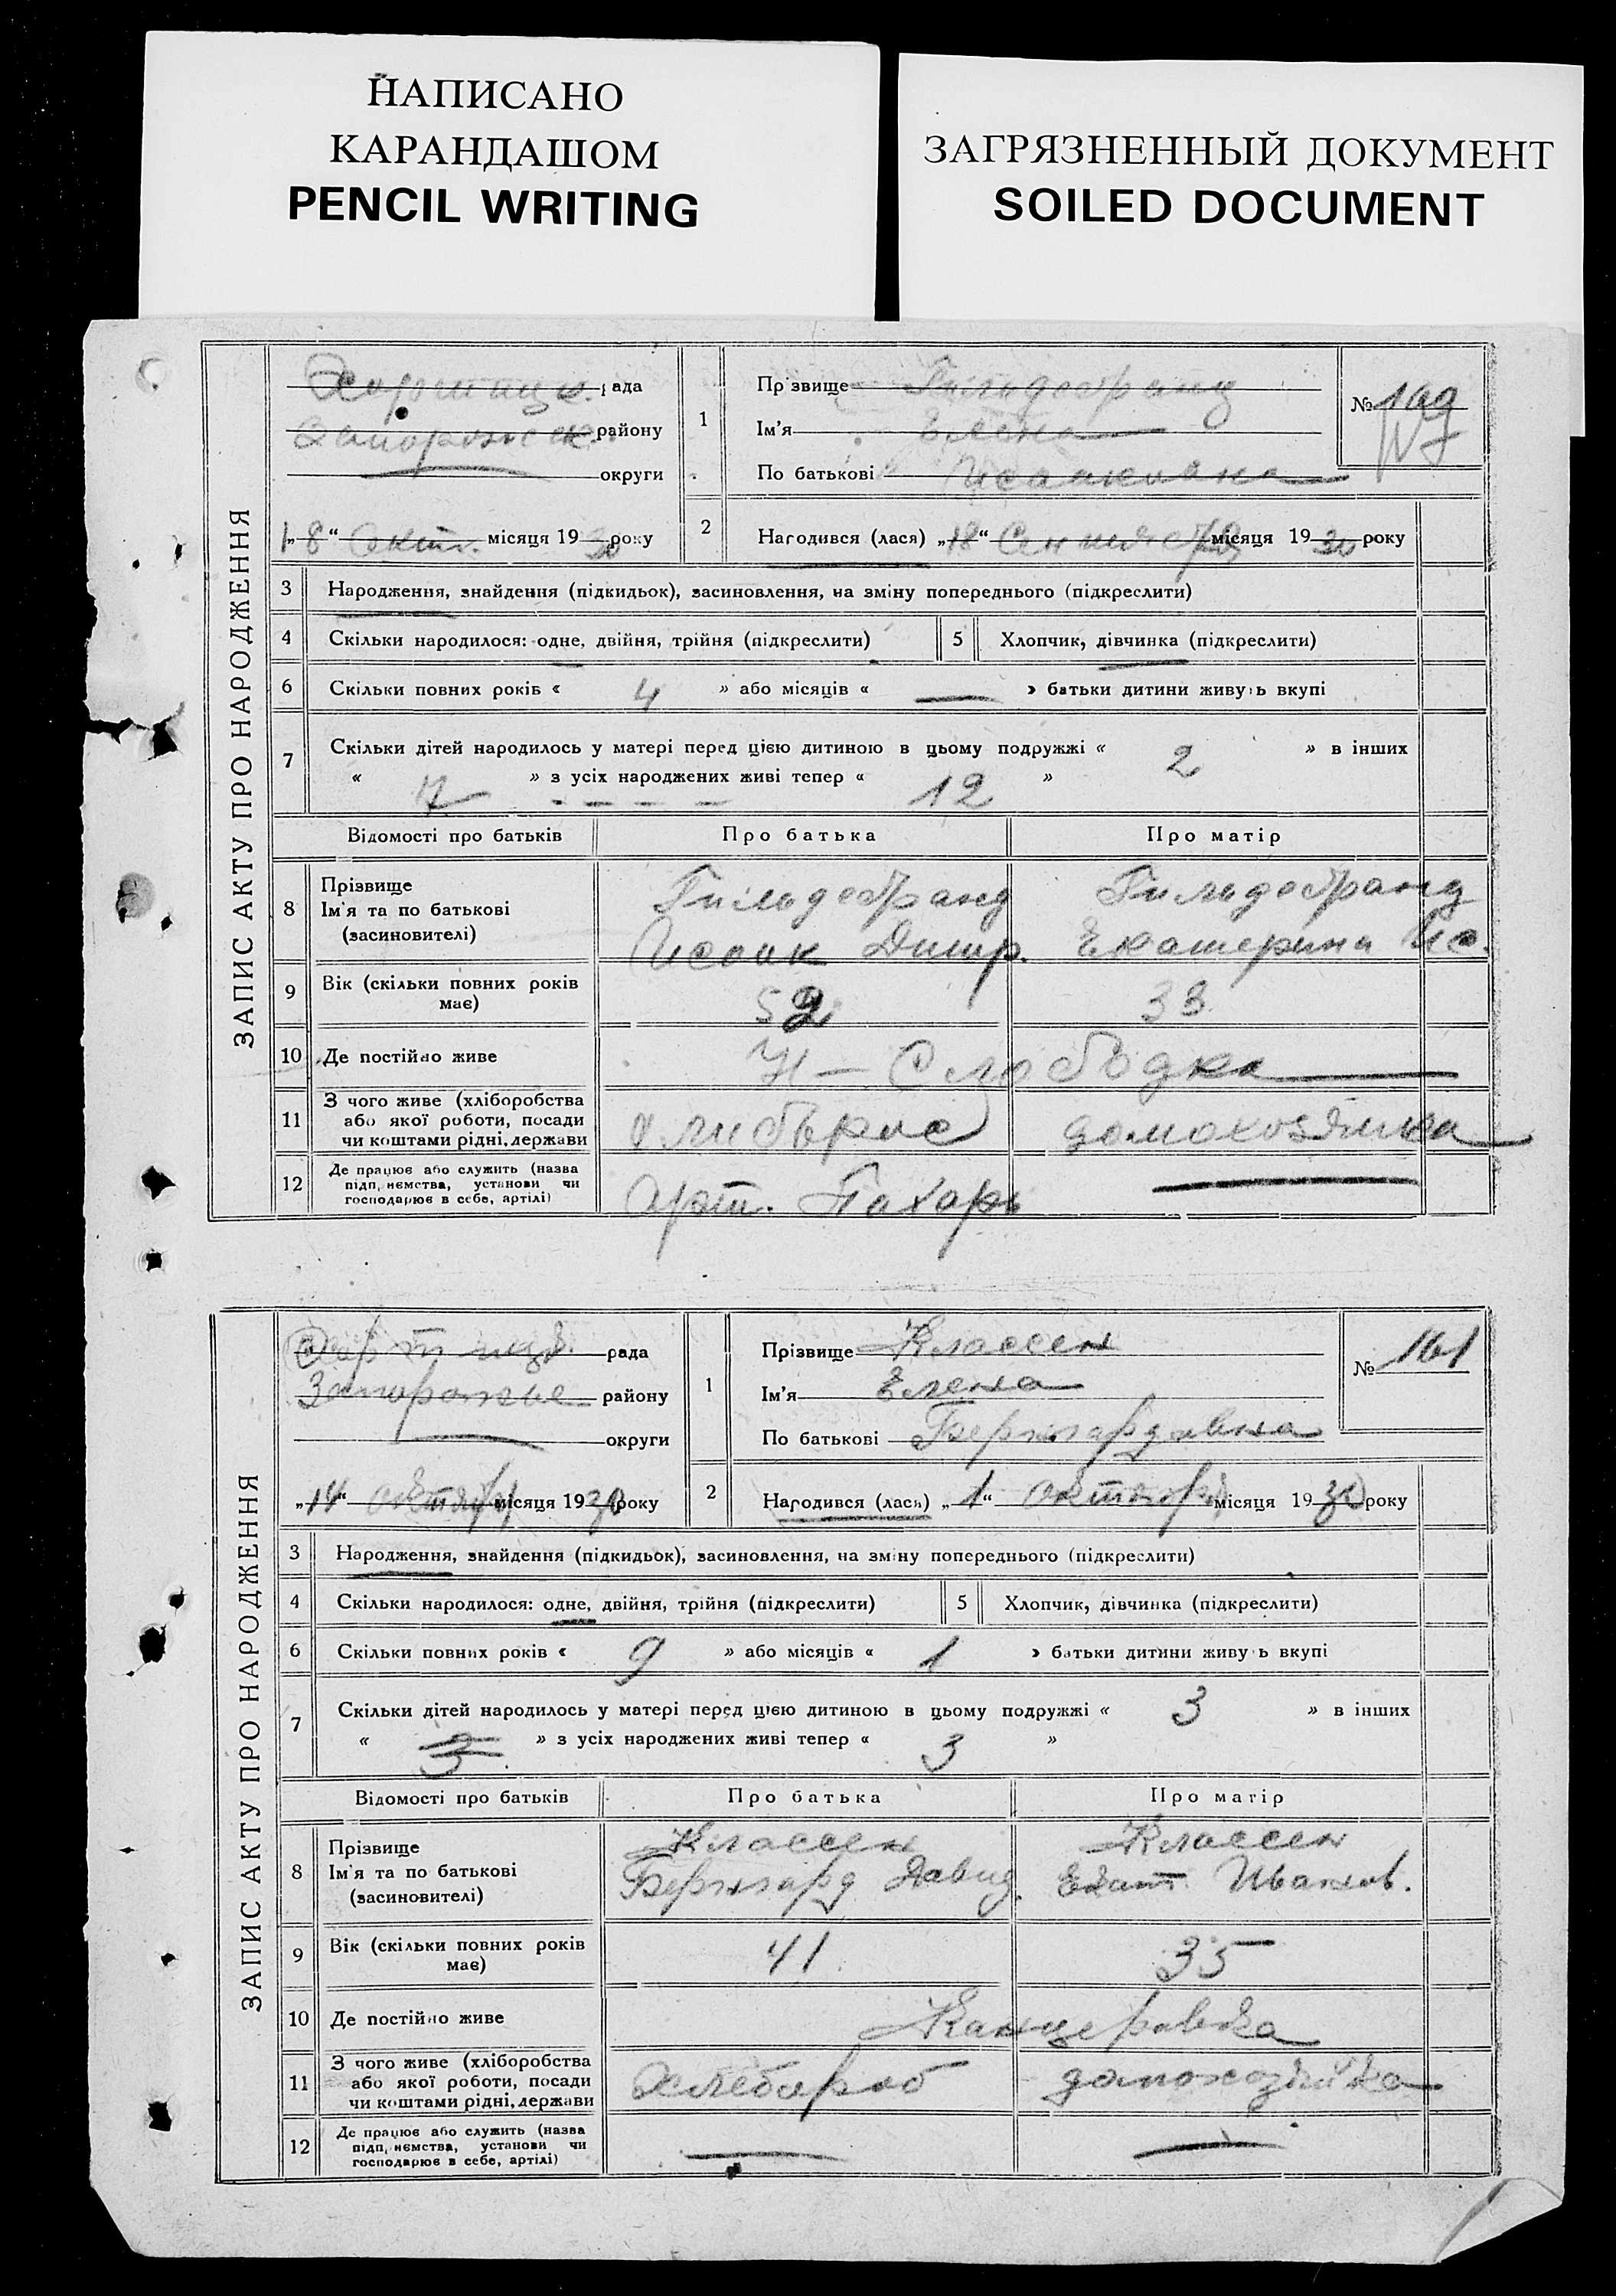 НАПИСАНО
КАРАНДАШОМ
PENCIL WRITING
ЗАГРЯЗНЕННЫЙ ДОКУМЕНТ
SOILED DOCUMENT
ЗАПИС АКТУ ПРО НАРОДЖЕННЯ
Хортицк. рада
Запорожск. району
округи
„8“ Окт. місяця 1930 року
1 Прізвище Гильдебранд
Ім'я Елена
По батькові Исааковна
№ 169
2 Народився (лася) „18“ Сентября місяця 1930 року
3 Народження, знайдення (підкидьок), засиновлення, на зміну попереднього (підкреслити)
4 Скільки народилося: одне, двійня, трійня (підкреслити) 5 Хлопчик, дівчинка (підкреслити)
6 Скільки повних років « 4 » або місяців « — » батьки дитини живуть вкупі
7 Скільки дітей народилось у матері перед цією дитиною в цьому подружжі « 2 » в інших
« » з усіх народжених живі тепер « 12 »
Відомості про батьків Про батька Про матір
8 Прізвище Гильдебранд Гильдебранд
Ім'я та по батькові Исаак Дитр. Екатерина Ис.
(засиновителі)
9 Вік (скільки повних років має) 52 33
10 Де постійно живе Н — Слободка
11 З чого живе (хліборобства
або якої роботи, посади
чи коштами рідні, держави домохозяйка
12 Де працює або служить (назва
підприємства, установи чи
господарює в себе, артілі) Арт. Пахарь
ЗАПИС АКТУ ПРО НАРОДЖЕННЯ
рада
Запорожье району
округи
„14“ октября місяця 1930 року
1 Прізвище Классен
Ім'я Елена
По батькові Бернгардовна
№ 161
2 Народився (лася) „1“ октября місяця 1930 року
3 Народження, знайдення (підкидьок), засиновлення, на зміну попереднього (підкреслити)
4 Скільки народилося: одне, двійня, трійня (підкреслити) 5 Хлопчик, дівчинка (підкреслити)
6 Скільки повних років « 9 » або місяців « 1 » батьки дитини живуть вкупі
7 Скільки дітей народилось у матері перед цією дитиною в цьому подружжі « 3 » в інших
« 3 » з усіх народжених живі тепер « 3 »
Відомості про батьків Про батька Про матір
8 Прізвище Классен Классен
Ім'я та по батькові Бернгард Давид. Екат. Иванов.
(засиновителі)
9 Вік (скільки повних років має) 41 35
10 Де постійно живе Канцеровка
11 З чого живе (хліборобства
або якої роботи, посади
чи коштами рідні, держави Хлебороб домохозяйка
12 Де працює або служить (назва
підприємства, установи чи
господарює в себе, артілі) — —